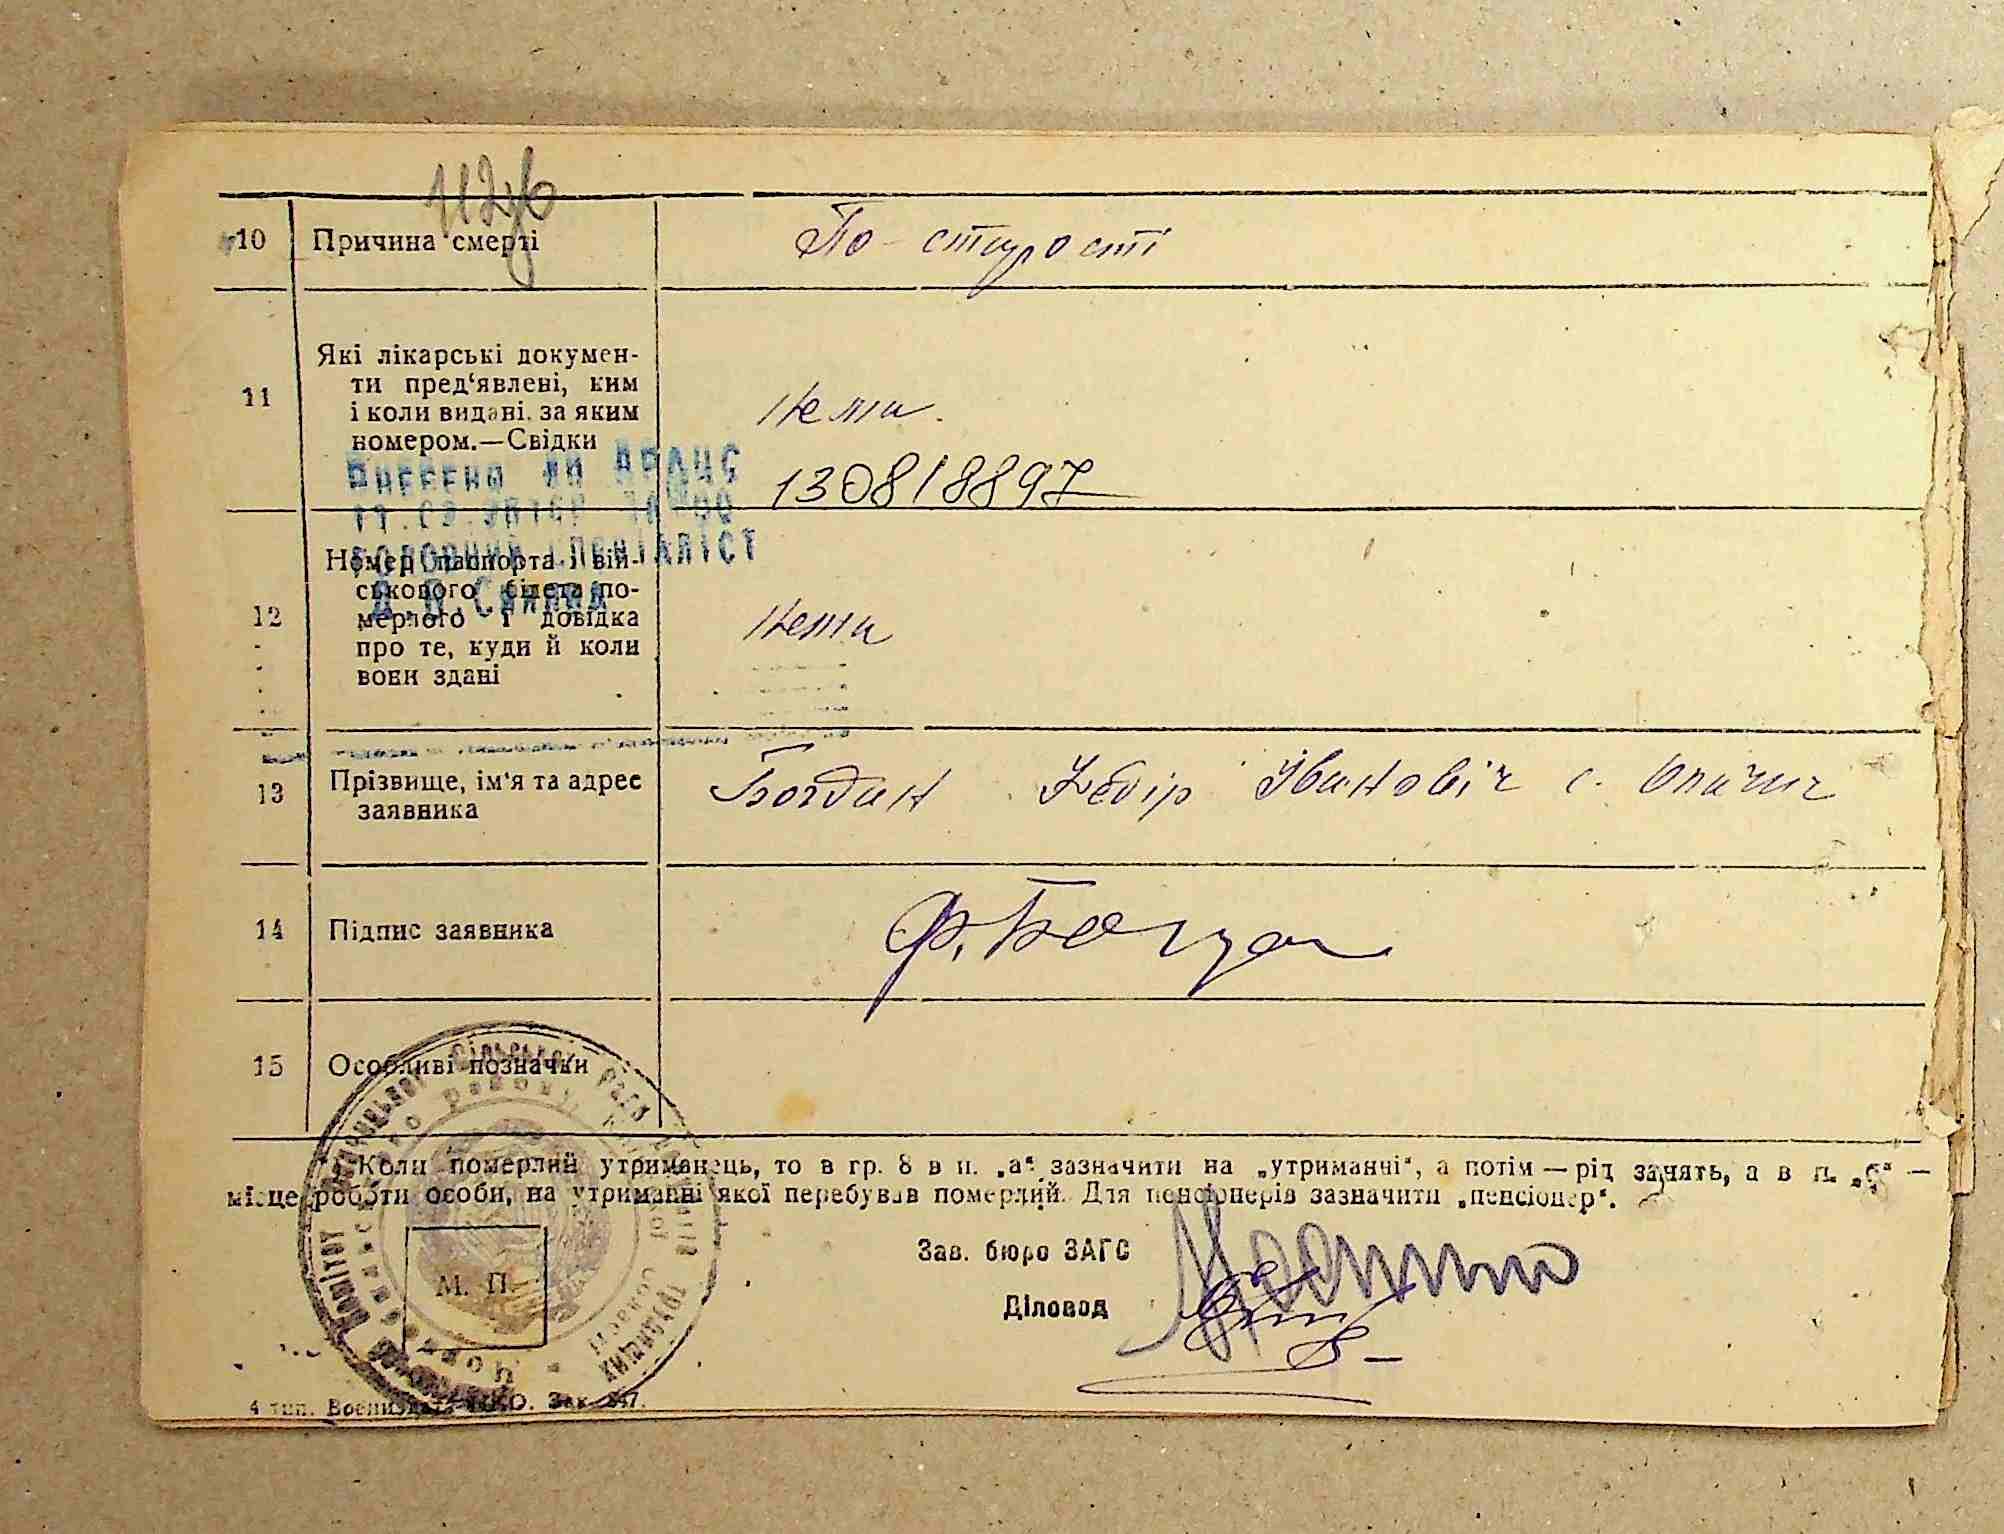 10 Причина смерті По-старості
Які лікарські докумен-
ти пред‘явлені, ким
11 і коли видані. за яким Нема.
номером.—Свідки
130818897
Номер паспорта і вій-
ськового білета по-
12 мерлого і довідка Нема
про те, куди й коли
вони здані
13 Прізвище, ім'я та адрес Богдан Федір Іванович с.
заявника
14 Підпис заявника Ф. Богдан
15 Особливі позначки
*) Коли померлий утриманець, то в гр. 8 в п. „а“ зазначити на „утриманні“, а потім — рід занять, а в п. „б“ —
місце роботи особи, на утриманні якої перебував померлий. Для пенсіонерів зазначити „пенсіонер“.
Зав. бюро ЗАГС
М. П.
Діловод
4 тип. Воениздата НКО. Зак.